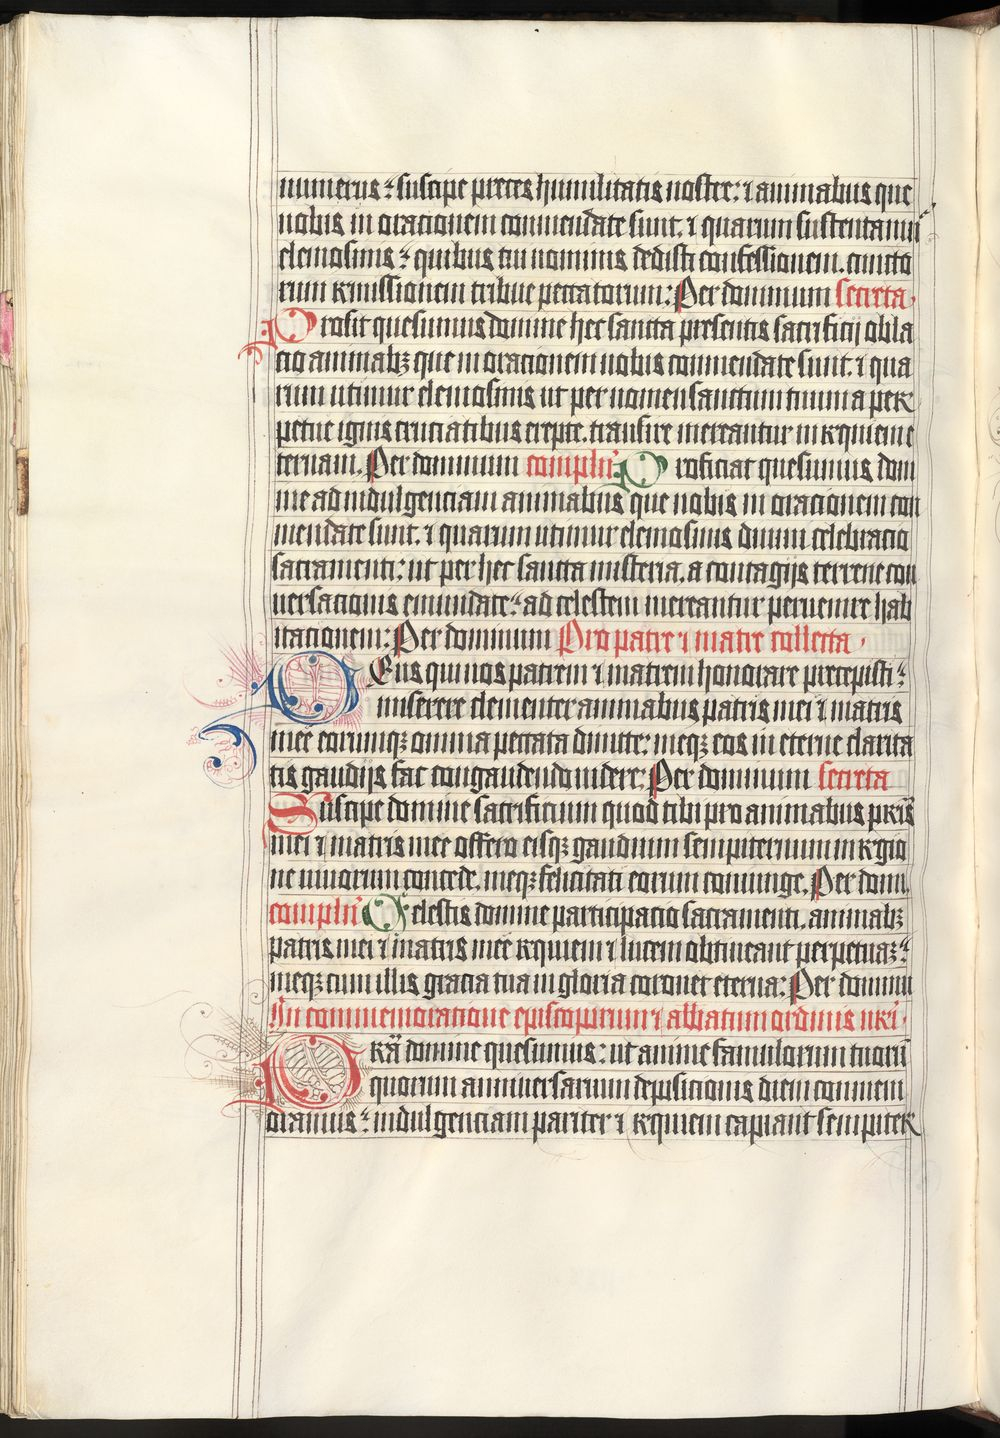 numerus: suscipe preces humilitatis nostre: et animabus que
nobis in orationem commendate sunt. et quarum sustentamur
elemosinis: quibus tui nominis dedisti confessionem. cuncto
rum remissionem tribue peccatorum: Per dominum secreta.
Prosit quesumus domine hec sancta presentis sacrificij obla
cio animabz que in oracionem nobis commendate sunt. et qua
rum utimur elemosinis ut per nomen sanctum tuum a per
petue ignis cruciatibus erepte. transire mereantur in requiem e
ternam. Per dominum complen Proficiat quesumus domi
ne ad indulgenciam animabus que nobis in oracionem com
mendate sunt. et quarum utimur elemosinis diuini celebracio
sacramenti: ut per hec sancta misteria. a contagijs terrene con
uersacionis emundate: ad celestem mereantur peruenire hab
itacionem: Per dominum Pro patre et matre collecta.
Deus qui nos patrem et matrem honorare precepisti:
miserere clementer animabus patris mei et matris
mee eorumqz omnia peccata dimitte: meqz eos in eterne clarita
tis gaudijs fac congaudendo uidere: Per dominum secreta
Suscipe domine sacrificium quod tibi pro animabus pris
mei et matris mee offero eisqz gaudium sempiternum in regio
ne uiuorum concede. meqz felicitati eorum coniunge. Per dom.
complen Celestis domine participacio sacramenti. animabz
patris mei et matris mee requiem et lucem obtineant perpetuaz:
meqz cum illis gracia tua in gloria coronet eterna: Per dominu
In commemoratione episcoporum et abbatum ordinis nri.
Pra domine quesumus: ut anime famulorum tuoru
quorum anniuersarium deposicionis diem commem
oramus: indulgenciam pariter et requiem capiant sempiter